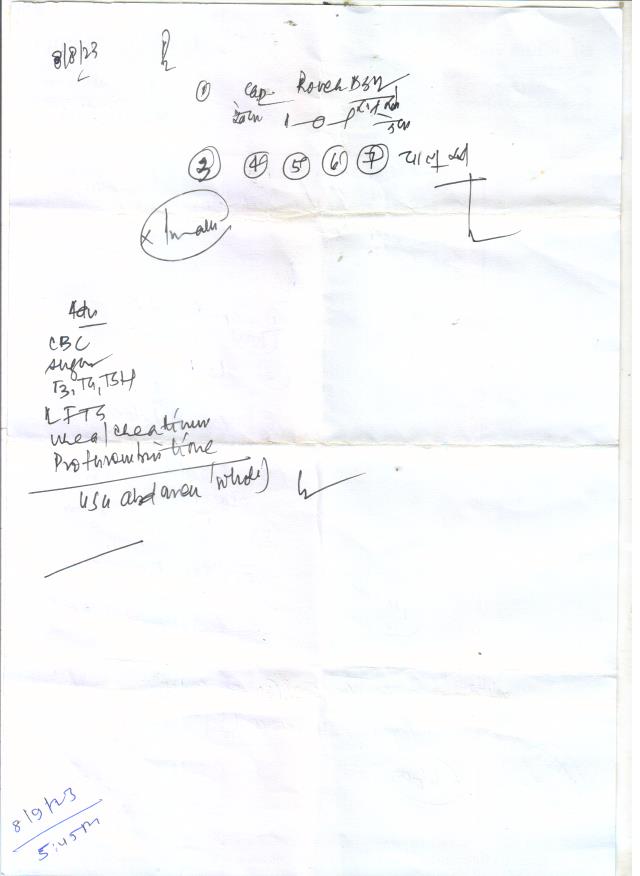 8/8/23
① Cap.
1 – 0 – 1
③ ④ ⑤ ⑥ ⑦ चालू रखें
Adv
CBC
sugar
T3, T4, TSH
LFTS
urea/creatinin
Prothrombin time
USG abdomen (whole)
8/9/23
5:45 PM